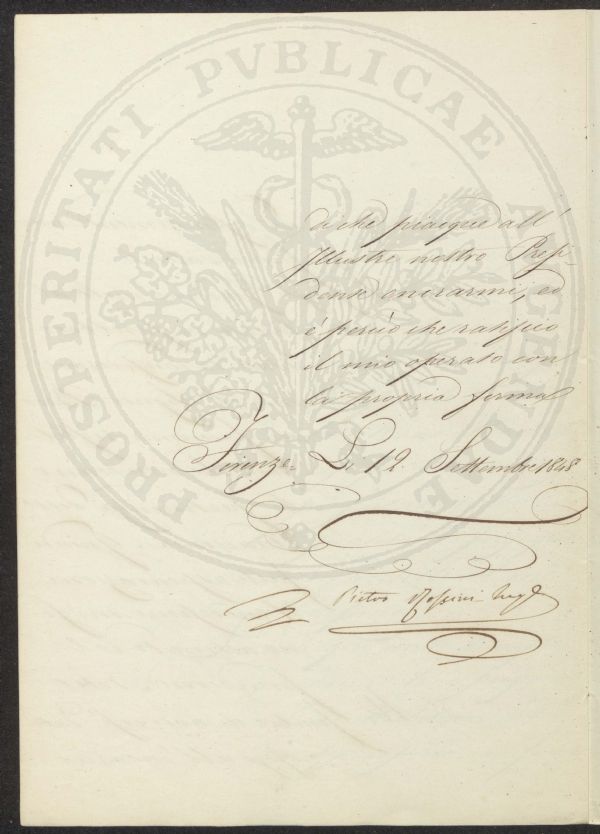 PROSPERITATI PVBLICAE AVGENDAE
di che piacque all'
Illustre nostro Presi
dente onorarmi, ed
è perciò che ratifico
il mio operato con
la propria firma
Firenze Li 12. Settembre 1848
Pietro